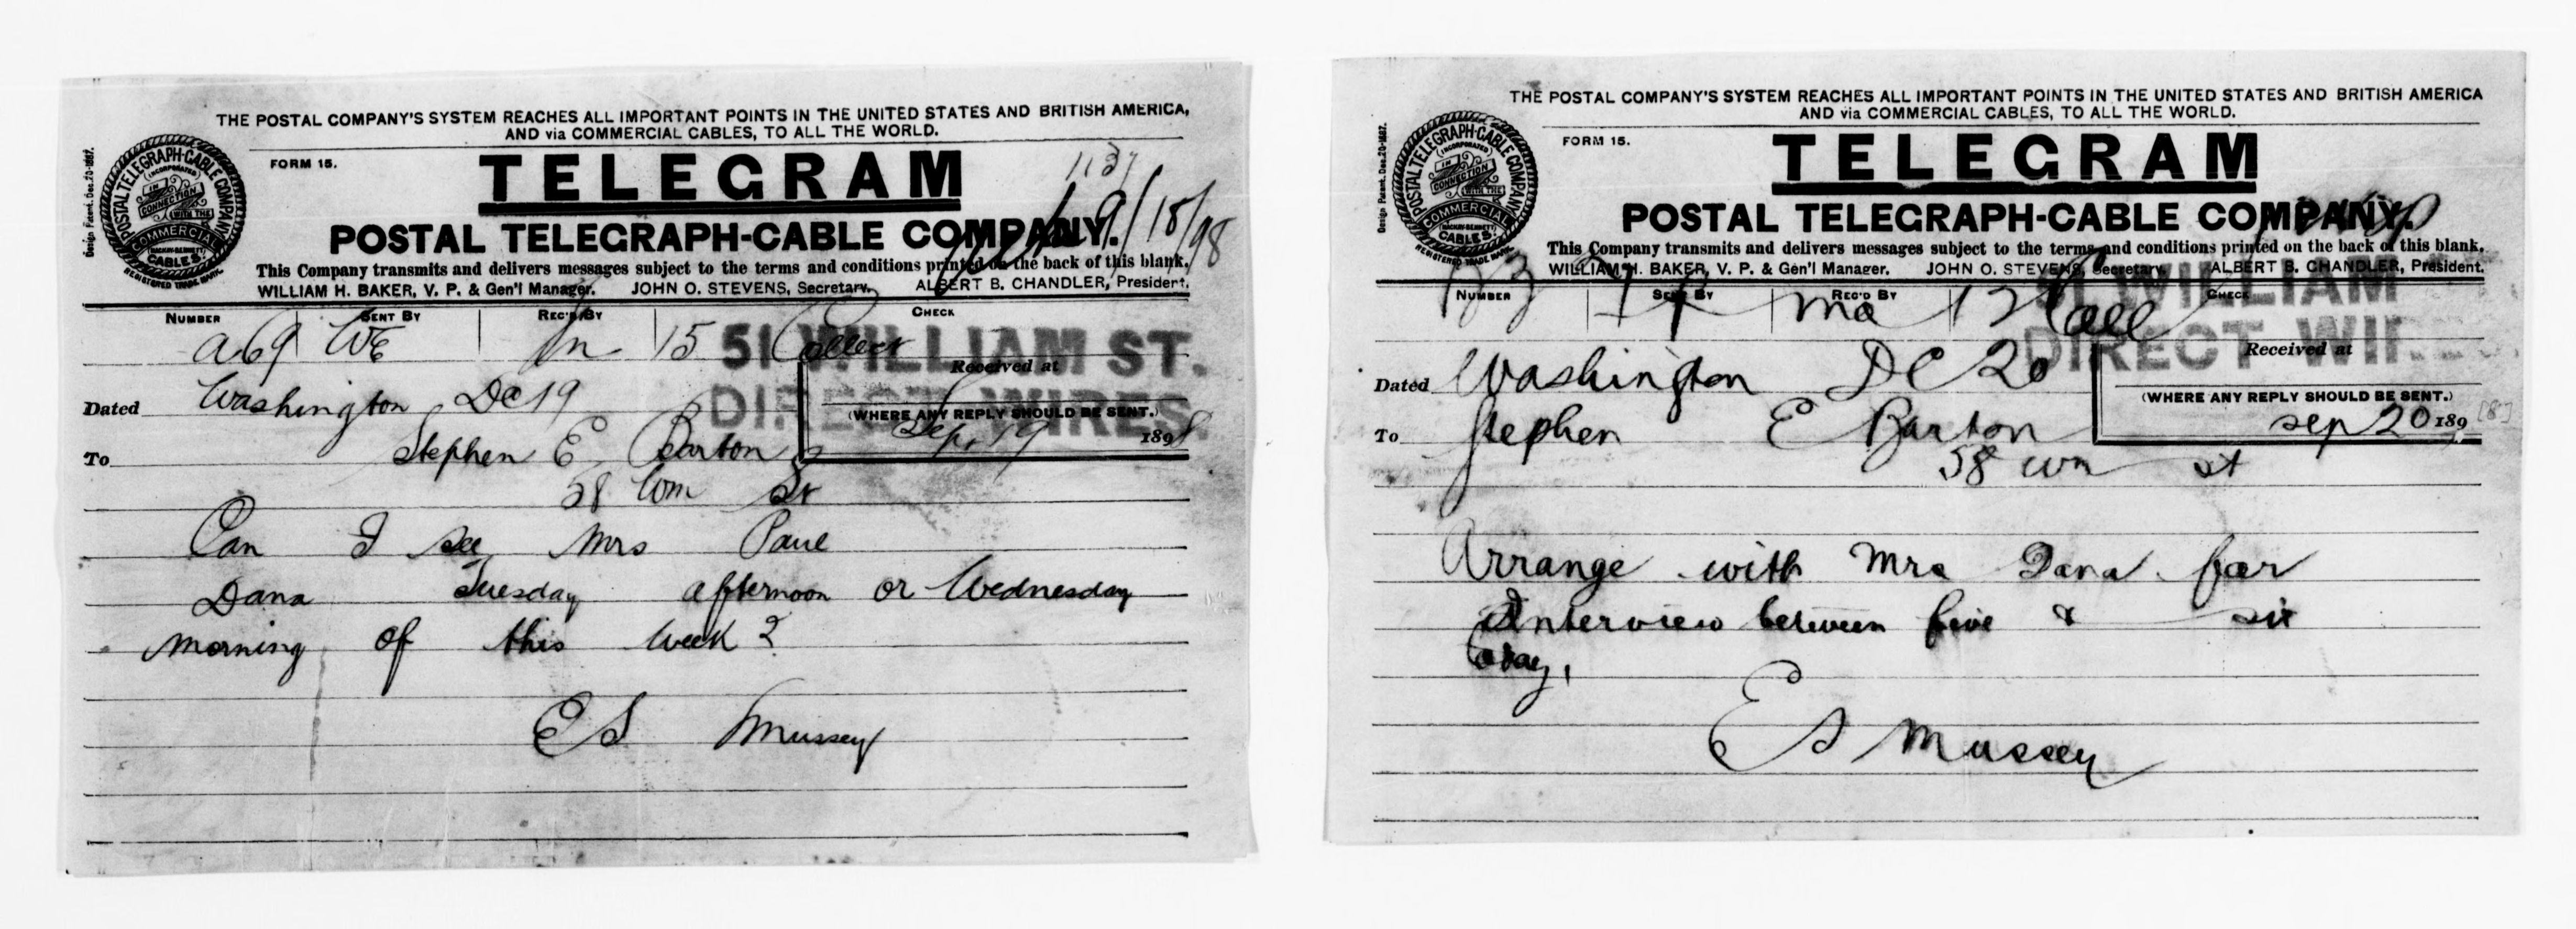 THE POSTAL COMPANY'S SYSTEM REACHES ALL IMPORTANT POINTS IN THE UNITED STATES AND BRITISH AMERICA,
AND via COMMERCIAL CABLES, TO ALL THE WORLD.
Design Patent. Dec.20-1887.
POSTAL TELEGRAPH-CABLE COMPANY
(INCORPORATED)
IN CONNECTION WITH THE
COMMERCIAL
(MACKAY-BENNETT)
CABLES.
REGISTERED TRADE MARK.
FORM 15.
TELEGRAM
1137
9/15/98
POSTAL TELEGRAPH-CABLE COMPANY.
This Company transmits and delivers messages subject to the terms and conditions printed on the back of this blank.
WILLIAM H. BAKER, V. P. & Gen'l Manager. JOHN O. STEVENS, Secretary. ALBERT B. CHANDLER, President.
NUMBER SENT BY REC'D BY CHECK
a69 WE 15 Collect
51 WILLIAM ST.
DIRECT WIRES.
Received at
(WHERE ANY REPLY SHOULD BE SENT.)
Dated Washington DC 19
Sep. 19 1898
To Stephen E Barton
58 Wm St
Can I see Mrs Paul
Dana Tuesday afternoon or Wednesday
morning of this week?
E S Mussey
THE POSTAL COMPANY'S SYSTEM REACHES ALL IMPORTANT POINTS IN THE UNITED STATES AND BRITISH AMERICA
AND via COMMERCIAL CABLES, TO ALL THE WORLD.
Design Patent. Dec.20-1887.
POSTAL TELEGRAPH-CABLE COMPANY
(INCORPORATED)
IN CONNECTION WITH THE
COMMERCIAL
(MACKAY-BENNETT)
CABLES.
REGISTERED TRADE MARK.
FORM 15.
TELEGRAM
POSTAL TELEGRAPH-CABLE COMPANY.
This Company transmits and delivers messages subject to the terms and conditions printed on the back of this blank.
WILLIAM H. BAKER, V. P. & Gen'l Manager. JOHN O. STEVENS, Secretary. ALBERT B. CHANDLER, President.
NUMBER SENT BY REC'D BY CHECK
Ma 12
51 WILLIAM
DIRECT WIRES
Received at
(WHERE ANY REPLY SHOULD BE SENT.)
Dated Washington DC 20
sep 20 189[8]
To Stephen E Barton
58 wm st
Arrange with Mrs Dana for
Interview between five & six
today,
E S Mussey